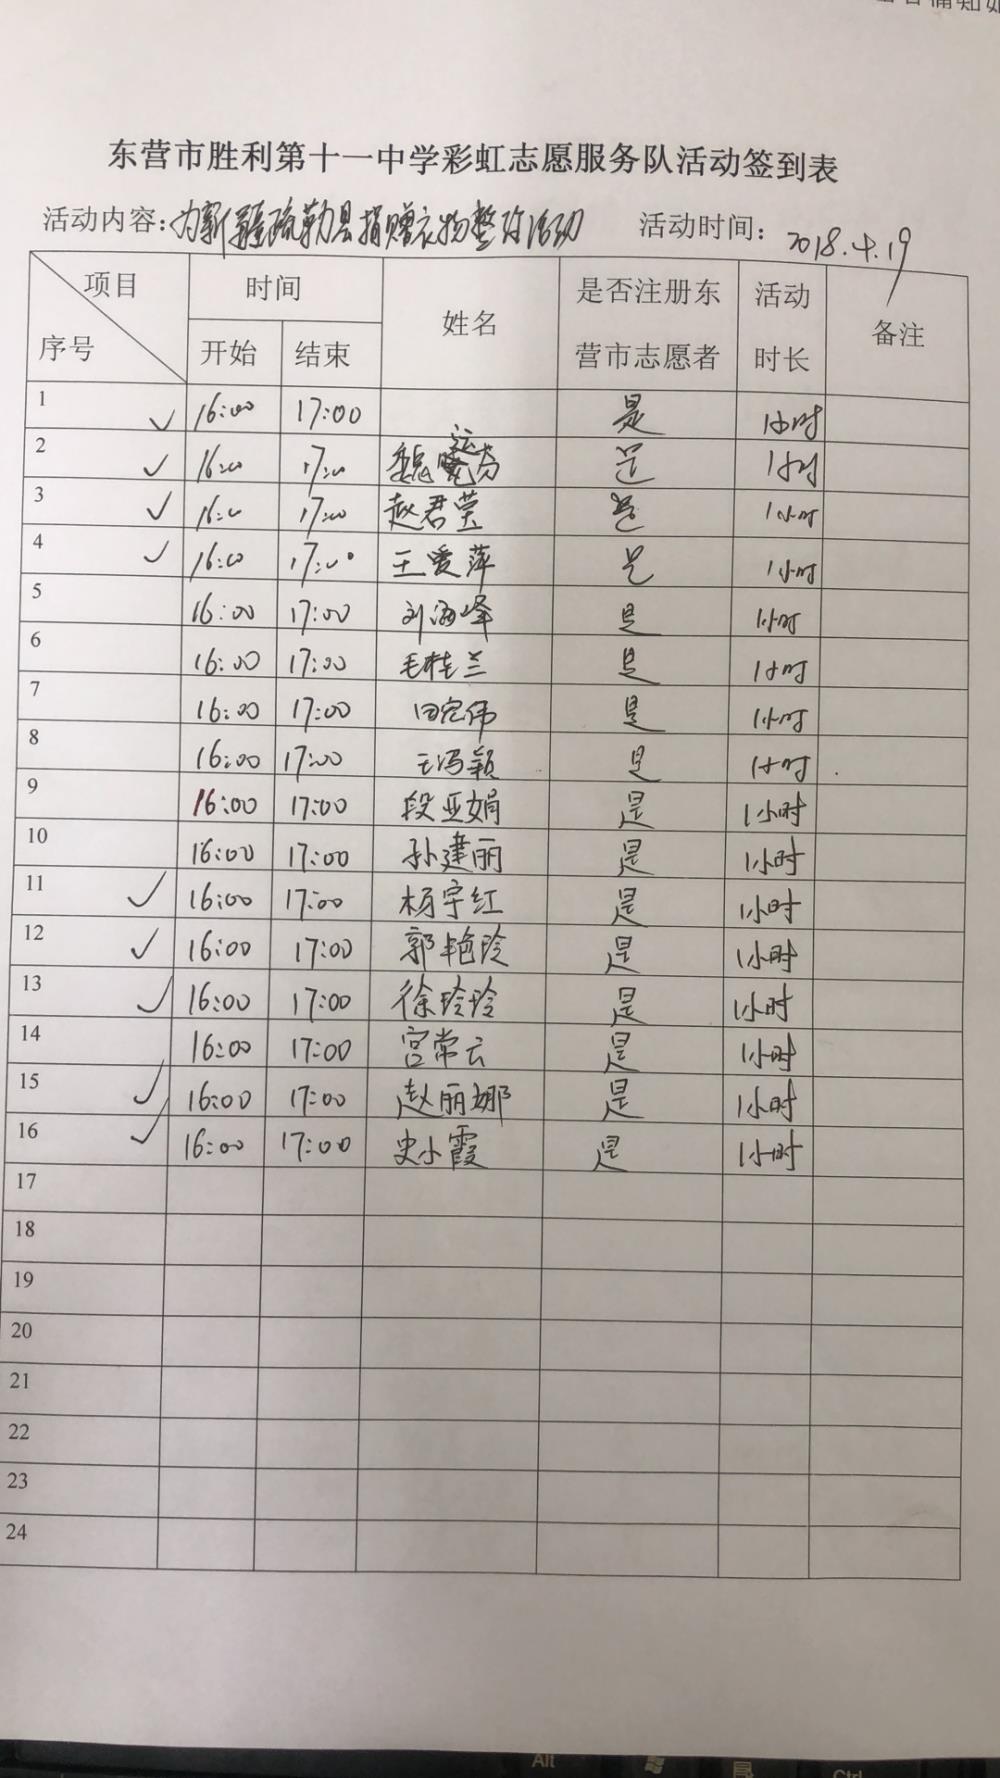 东营市胜利第十一中学彩虹志愿服务队活动签到表
活动内容：为新疆疏勒县捐赠衣物整理活动 活动时间：2018.4.19
项目 时间 姓名 是否注册东营市志愿者 活动时长 备注
序号 开始 结束
1 ✓ 16:00 17:00 是 1小时
2 ✓ 16:00 17:00 魏运芬 是 1小时
3 ✓ 16:00 17:00 赵君莹 是 1小时
4 ✓ 16:00 17:00 王爱萍 是 1小时
5 16:00 17:00 刘海峰 是 1小时
6 16:00 17:00 毛桂兰 是 1小时
7 16:00 17:00 田宏伟 是 1小时
8 16:00 17:00 王冯颖 是 1小时
9 16:00 17:00 段亚娟 是 1小时
10 16:00 17:00 孙建丽 是 1小时
11 ✓ 16:00 17:00 杨宇红 是 1小时
12 ✓ 16:00 17:00 郭艳玲 是 1小时
13 ✓ 16:00 17:00 徐玲玲 是 1小时
14 16:00 17:00 宫常云 是 1小时
15 ✓ 16:00 17:00 赵丽娜 是 1小时
16 ✓ 16:00 17:00 史小霞 是 1小时
17
18
19
20
21
22
23
24
Alt
Ctrl